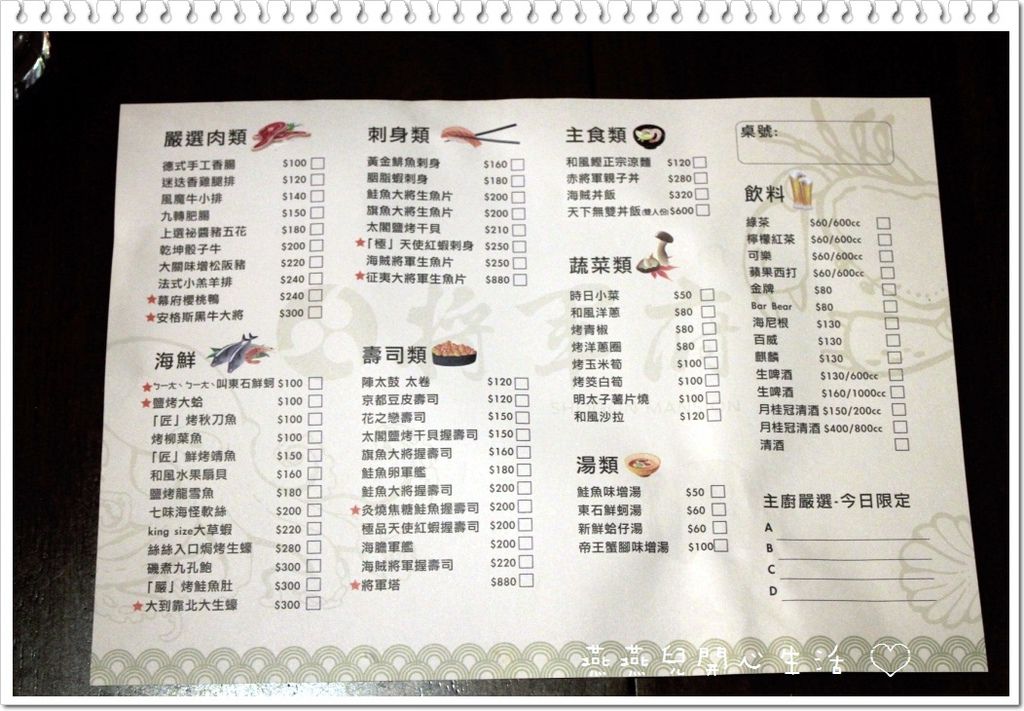 嚴選肉類
德式手工香腸 $100
迷迭香雞腿排 $120
風魔牛小排 $140
九轉肥腸 $150
上選祕醬豬五花 $180
乾坤骰子牛 $200
大關味增松阪豬 $220
法式小羔羊排 $240
★幕府櫻桃鴨 $240
★安格斯黑牛大將 $300
海鮮
★ㄅㄧㄤˋㄅㄧㄤˋ叫東石鮮蚵 $100
★鹽烤大蛤 $100
「匠」烤秋刀魚 $100
烤柳葉魚 $100
「匠」鮮烤鯖魚 $150
和風水果扇貝 $160
鹽烤龍雪魚 $180
七味海怪軟絲 $200
king size大草蝦 $220
絲絲入口焗烤生蠔 $280
磯煮九孔鮑 $300
「嚴」烤鮭魚肚 $300
★大到靠北大生蠔 $300
刺身類
黃金鯡魚刺身 $160
胭脂蝦刺身 $180
鮭魚大將生魚片 $200
旗魚大將生魚片 $200
太閣鹽烤干貝 $210
★「極」天使紅蝦刺身 $250
海賊將軍生魚片 $250
★征夷大將軍生魚片 $880
壽司類
陣太鼓 太卷 $120
京都豆皮壽司 $120
花之戀壽司 $150
太閣鹽烤干貝握壽司 $150
旗魚大將握壽司 $160
鮭魚卵軍艦 $180
鮭魚大將握壽司 $200
★炙燒焦糖鮭魚握壽司 $200
極品天使紅蝦握壽司 $200
海膽軍艦 $200
海賊將軍握壽司 $220
★將軍塔 $880
主食類
和風鰹正宗涼麵 $120
赤將軍親子丼 $280
海賊丼飯 $320
天下無雙丼飯(雙人份) $600
蔬菜類
時日小菜 $50
和風洋蔥 $80
烤青椒 $80
烤洋蔥圈 $80
烤玉米筍 $100
烤筊白筍 $100
明太子薯片燒 $100
和風沙拉 $120
湯類
鮭魚味增湯 $50
東石鮮蚵湯 $60
新鮮蛤仔湯 $60
帝王蟹腳味增湯 $100
桌號:
飲料
綠茶 $60/600cc
檸檬紅茶 $60/600cc
可樂 $60/600cc
蘋果西打 $60/600cc
金牌 $80
Bar Bear $80
海尼根 $130
百威 $130
麒麟 $130
生啤酒 $130/600cc
生啤酒 $160/1000cc
月桂冠清酒 $150/200cc
月桂冠清酒 $400/800cc
清酒
主廚嚴選-今日限定
A
B
C
D
燕燕兒開心生活